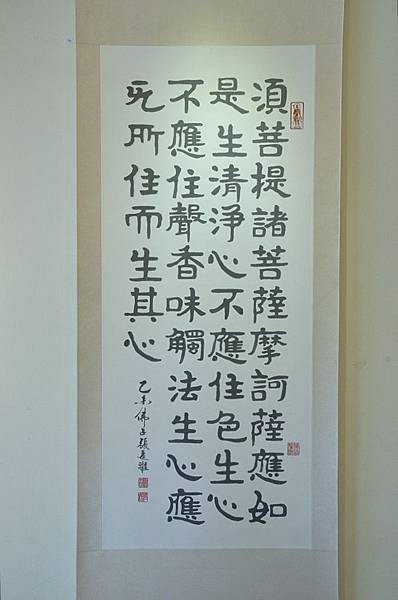 須菩提諸菩薩摩訶薩應如
是生清淨心不應住色生心
不應住聲香味觸法生心應
无所住而生其心
乙未佛子張